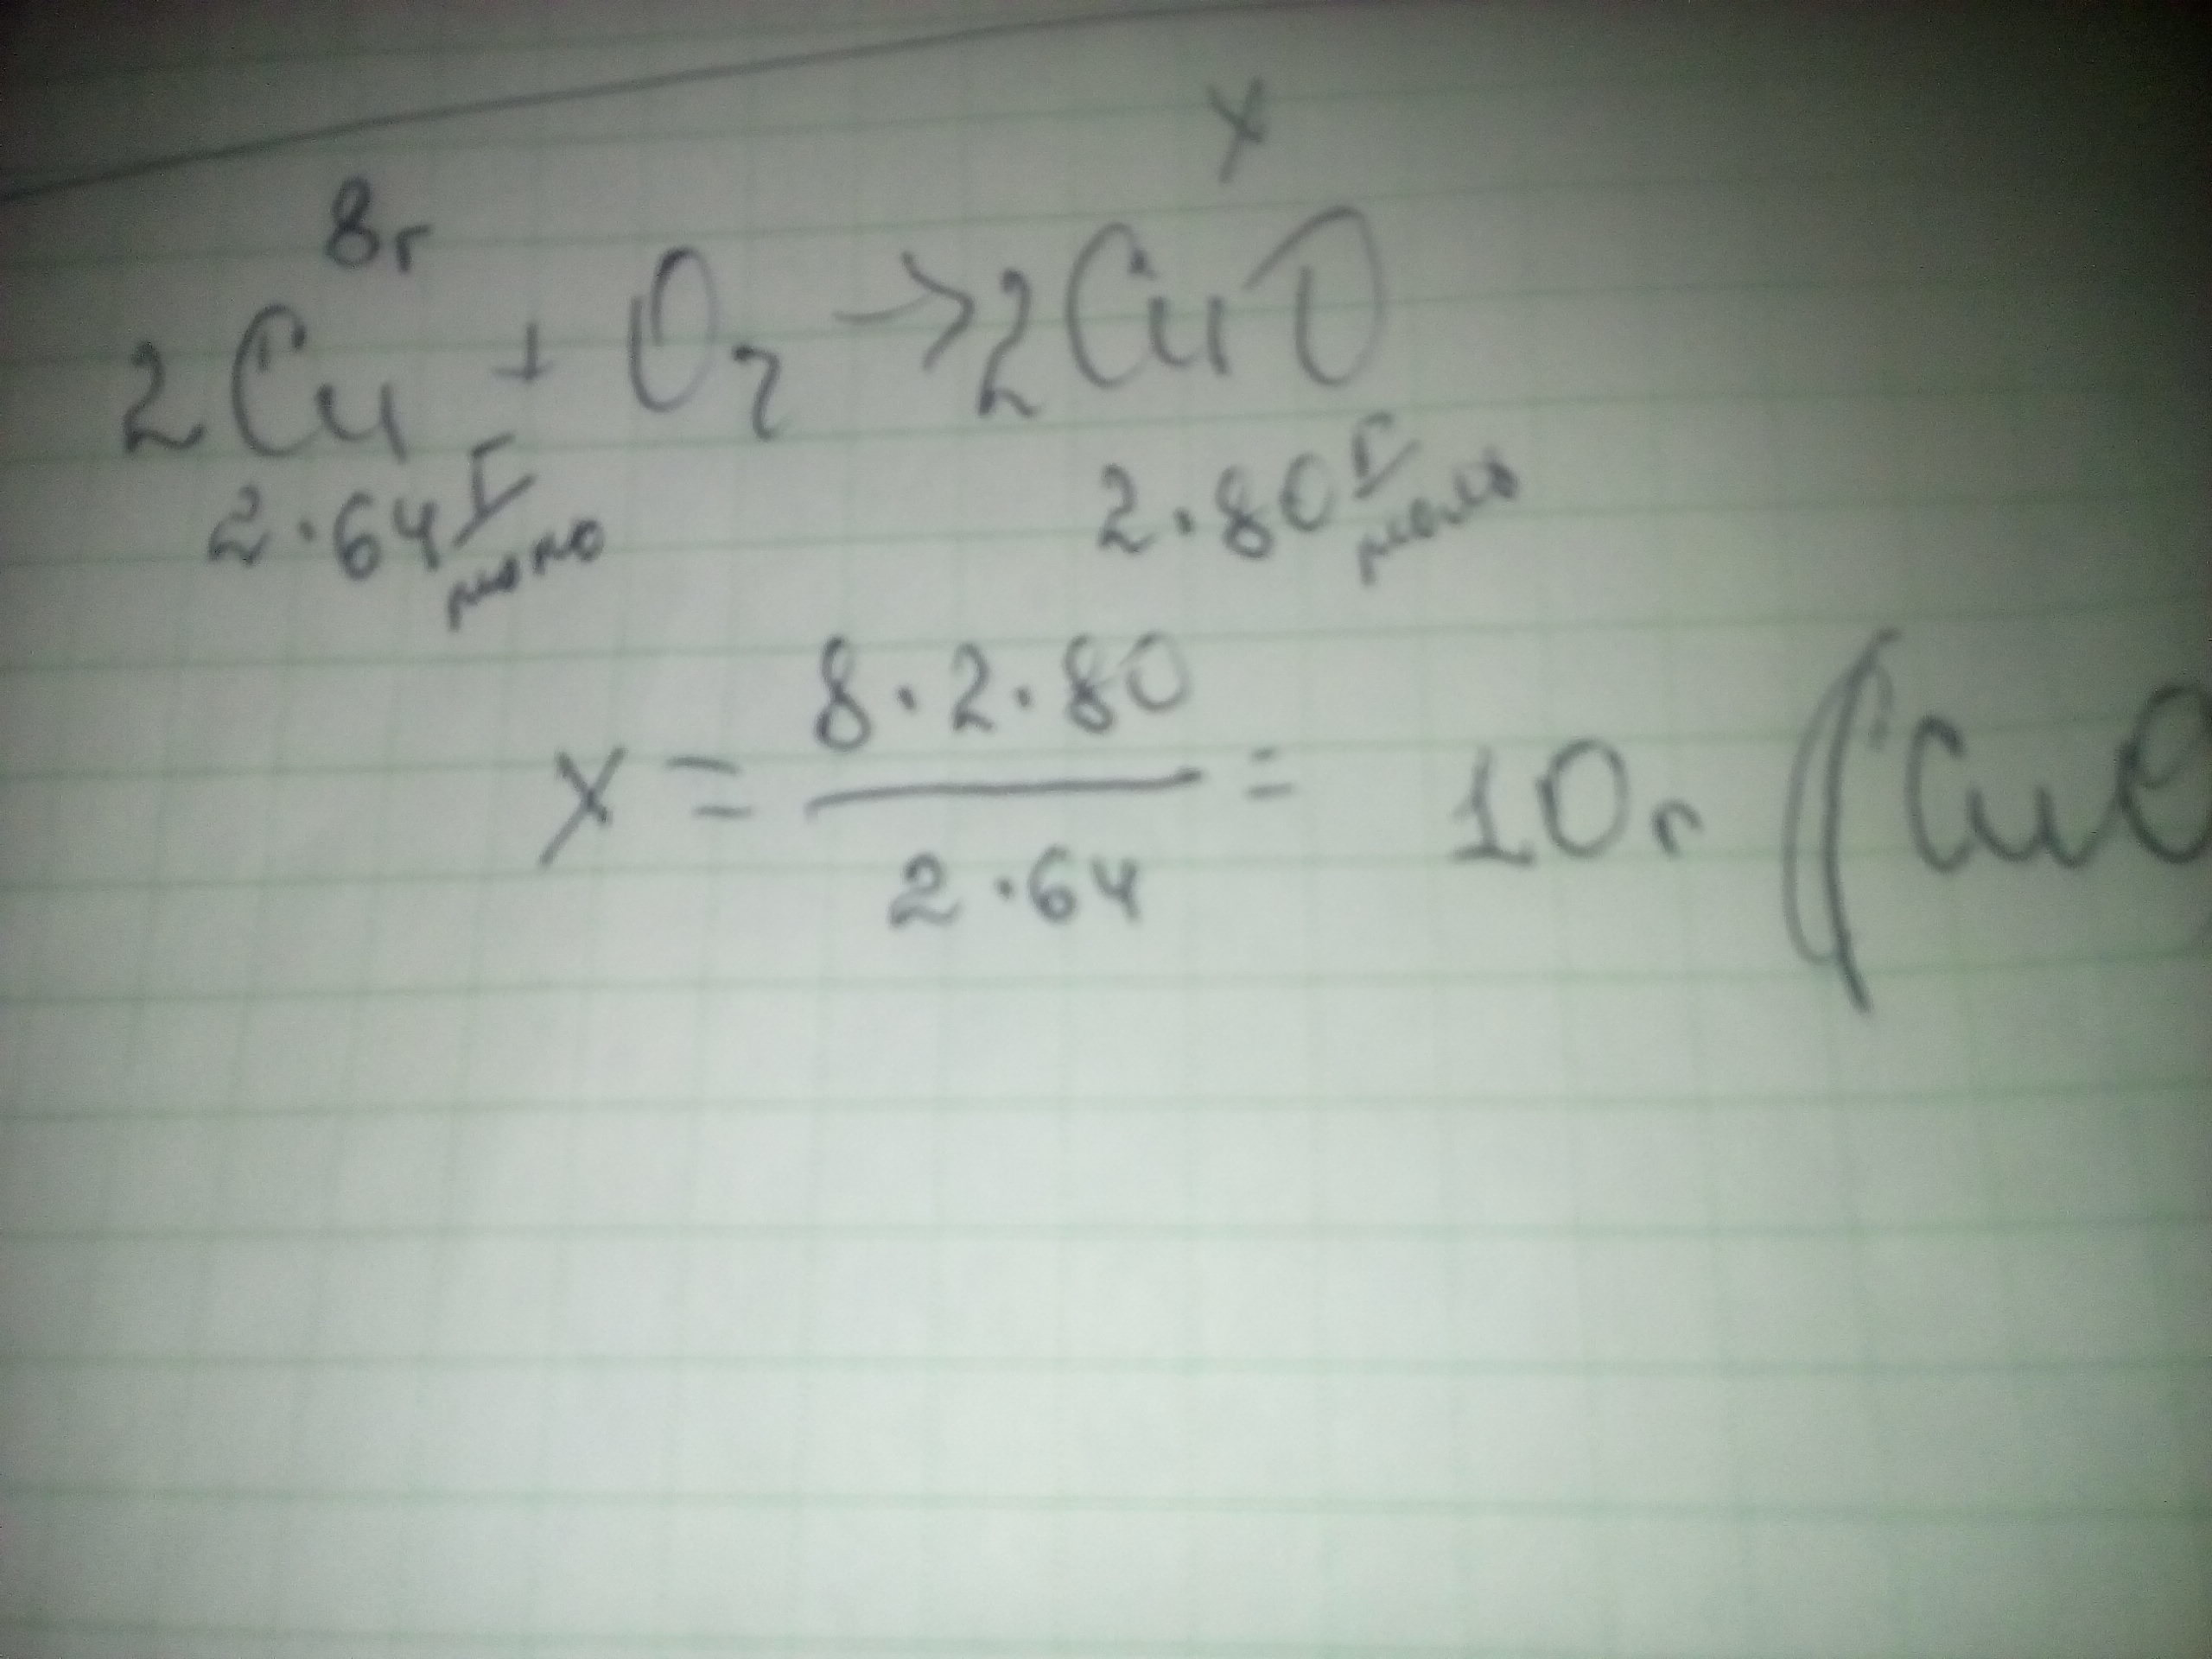 x
8г
2Cu + O₂ → 2CuO
2·64 г/моль 2·80 г/моль
x = (8·2·80)/(2·64) = 10г (CuO